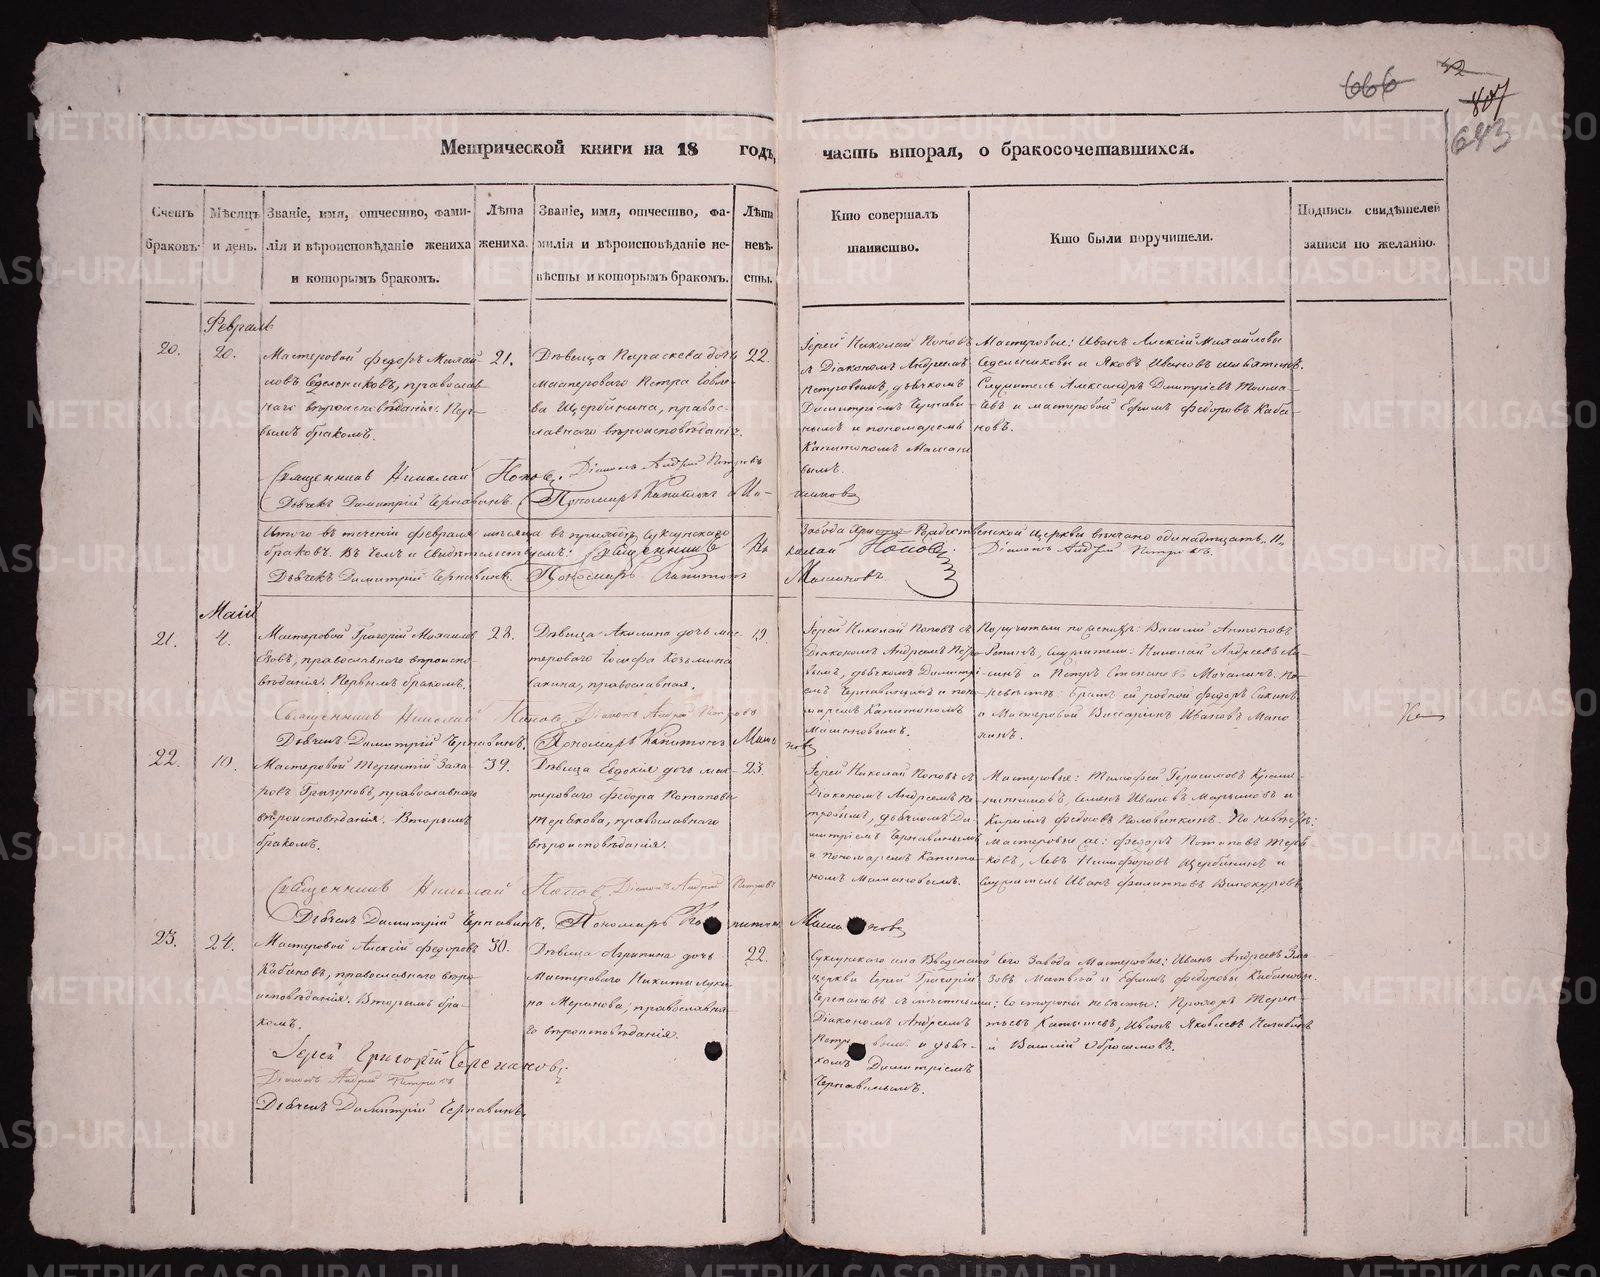 666
807
643
Метрической книги на 18 годъ, часть вторая, о бракосочетавшихся.
Счетъ браковъ.
Мѣсяцъ и день.
Званіе, имя, отчество, фами-
лія и вѣроисповѣданіе жениха
и которымъ бракомъ.
Лѣта
жениха.
Званіе, имя, отчество, фа-
милія и вѣроисповѣданіе не-
вѣсты и которымъ бракомъ.
Лѣта
невѣ-
сты.
Кто совершалъ
таинство.
Кто были поручители.
Подпись свидѣтелей
записи по желанію.
Февраль
20.
20.
Мастеровой Федоръ Михай-
ловъ Седельниковъ, православ-
наго вѣроисповѣданія. Пер-
вымъ бракомъ.
21.
Дѣвица Параскева дочь
мастероваго Петра
Щербинина, правос-
лавнаго вѣроисповѣданія.
22.
Іерей Николай Поповъ
съ Діакономъ Андреемъ
Петровымъ, дьячкомъ
Димитріемъ Чернави-
нымъ и пономаремъ
Капитономъ
Мастеровые: Иванъ Алексій Михайловы
Седельниковы и Яковъ Ивановъ
Служитель Александръ Дмитріевъ
и мастеровой Ефимъ Федоровъ Каба-
новъ.
Священникъ Николай Поповъ. Діаконъ Андрей Петровъ
Дьячекъ Димитрій Чернавинъ. Пономарь Капитонъ
Итого въ теченіи февраля мѣсяца въ приходѣ Суксунскаго Завода Христо-Рождественской Церкви вѣнчано одинадцать „11„
браковъ. Въ чемъ и свидѣтельствуемъ: Священникъ Николай Поповъ. Діаконъ Андрей Петровъ.
Дьячекъ Димитрій Чернавинъ. Пономарь Капитонъ
Маій
21.
4.
Мастеровой Григорій Михаиловъ
православнаго вѣроиспо-
вѣданія. Первымъ бракомъ.
28.
Дѣвица Акилина дочь мас-
тероваго Іосифа Козьмина
православная.
19.
Іерей Николай Поповъ съ
Діакономъ Андреемъ Петро-
вымъ, дьячкомъ Димитрі-
емъ Чернавинымъ и поно-
маремъ Капитономъ
Поручители по женихѣ: Василій Антоновъ
служители: Николай Андреевъ
и Петръ Степановъ Мочалинъ. По
невѣстѣ: братъ ей родной Федоръ
и Мастеровой Виссаріонъ Ивановъ
Священникъ Николай Поповъ. Діаконъ Андрей Петровъ
Дьячекъ Димитрій Чернавинъ. Пономарь Капитонъ
22.
10.
Мастеровой Терентій Заха-
ровъ православнаго
вѣроисповѣданія. Вторымъ
бракомъ.
39.
Дѣвица Евдокія дочь мас-
тероваго Федора Потапова
Терехова, православнаго
вѣроисповѣданія.
23.
Іерей Николай Поповъ съ
Діакономъ Андреемъ Пе-
тровымъ, дьячкомъ Ди-
митріемъ Чернавинымъ
и пономаремъ Капито-
номъ
Мастеровые: Тимофей Герасимовъ
Семенъ Ивановъ и
Кирилъ Федоровъ Половинкинъ. По невѣстѣ:
Мастеровые же: Федоръ Потаповъ Тере-
ховъ, Левъ Никифоровъ Щербининъ и
служитель Иванъ Филипповъ Винокуровъ.
Священникъ Николай Поповъ. Діаконъ Андрей Петровъ
Дьячекъ Димитрій Чернавинъ. Пономарь Капитонъ
23.
24.
Мастеровой Алексій Федоровъ
Кабановъ, православнаго вѣро-
исповѣданія. Вторымъ бра-
комъ.
30.
Дѣвица Агрипина дочь
Мастероваго Никиты Луки-
на православна-
го вѣроисповѣданія.
22.
Суксунскаго села Введенской
церкви Іерей Григорій
Черепановъ съ мѣстными:
Діакономъ Андреемъ
Петровымъ и дьяч-
комъ Димитріемъ
Чернавинымъ.
Сего Завода Мастеровые: Иванъ Андреевъ
Матвѣй и Ефимъ Федоровы Кабановы.
Со стороны невѣсты: Прохоръ Терен-
тьевъ Иванъ Яковлевъ
и Василій Абросимовъ.
Іерей Григорій Черепановъ
Діаконъ Андрей Петровъ
Дьячекъ Димитрій Чернавинъ.
METRIKI.GASO-URAL.RU